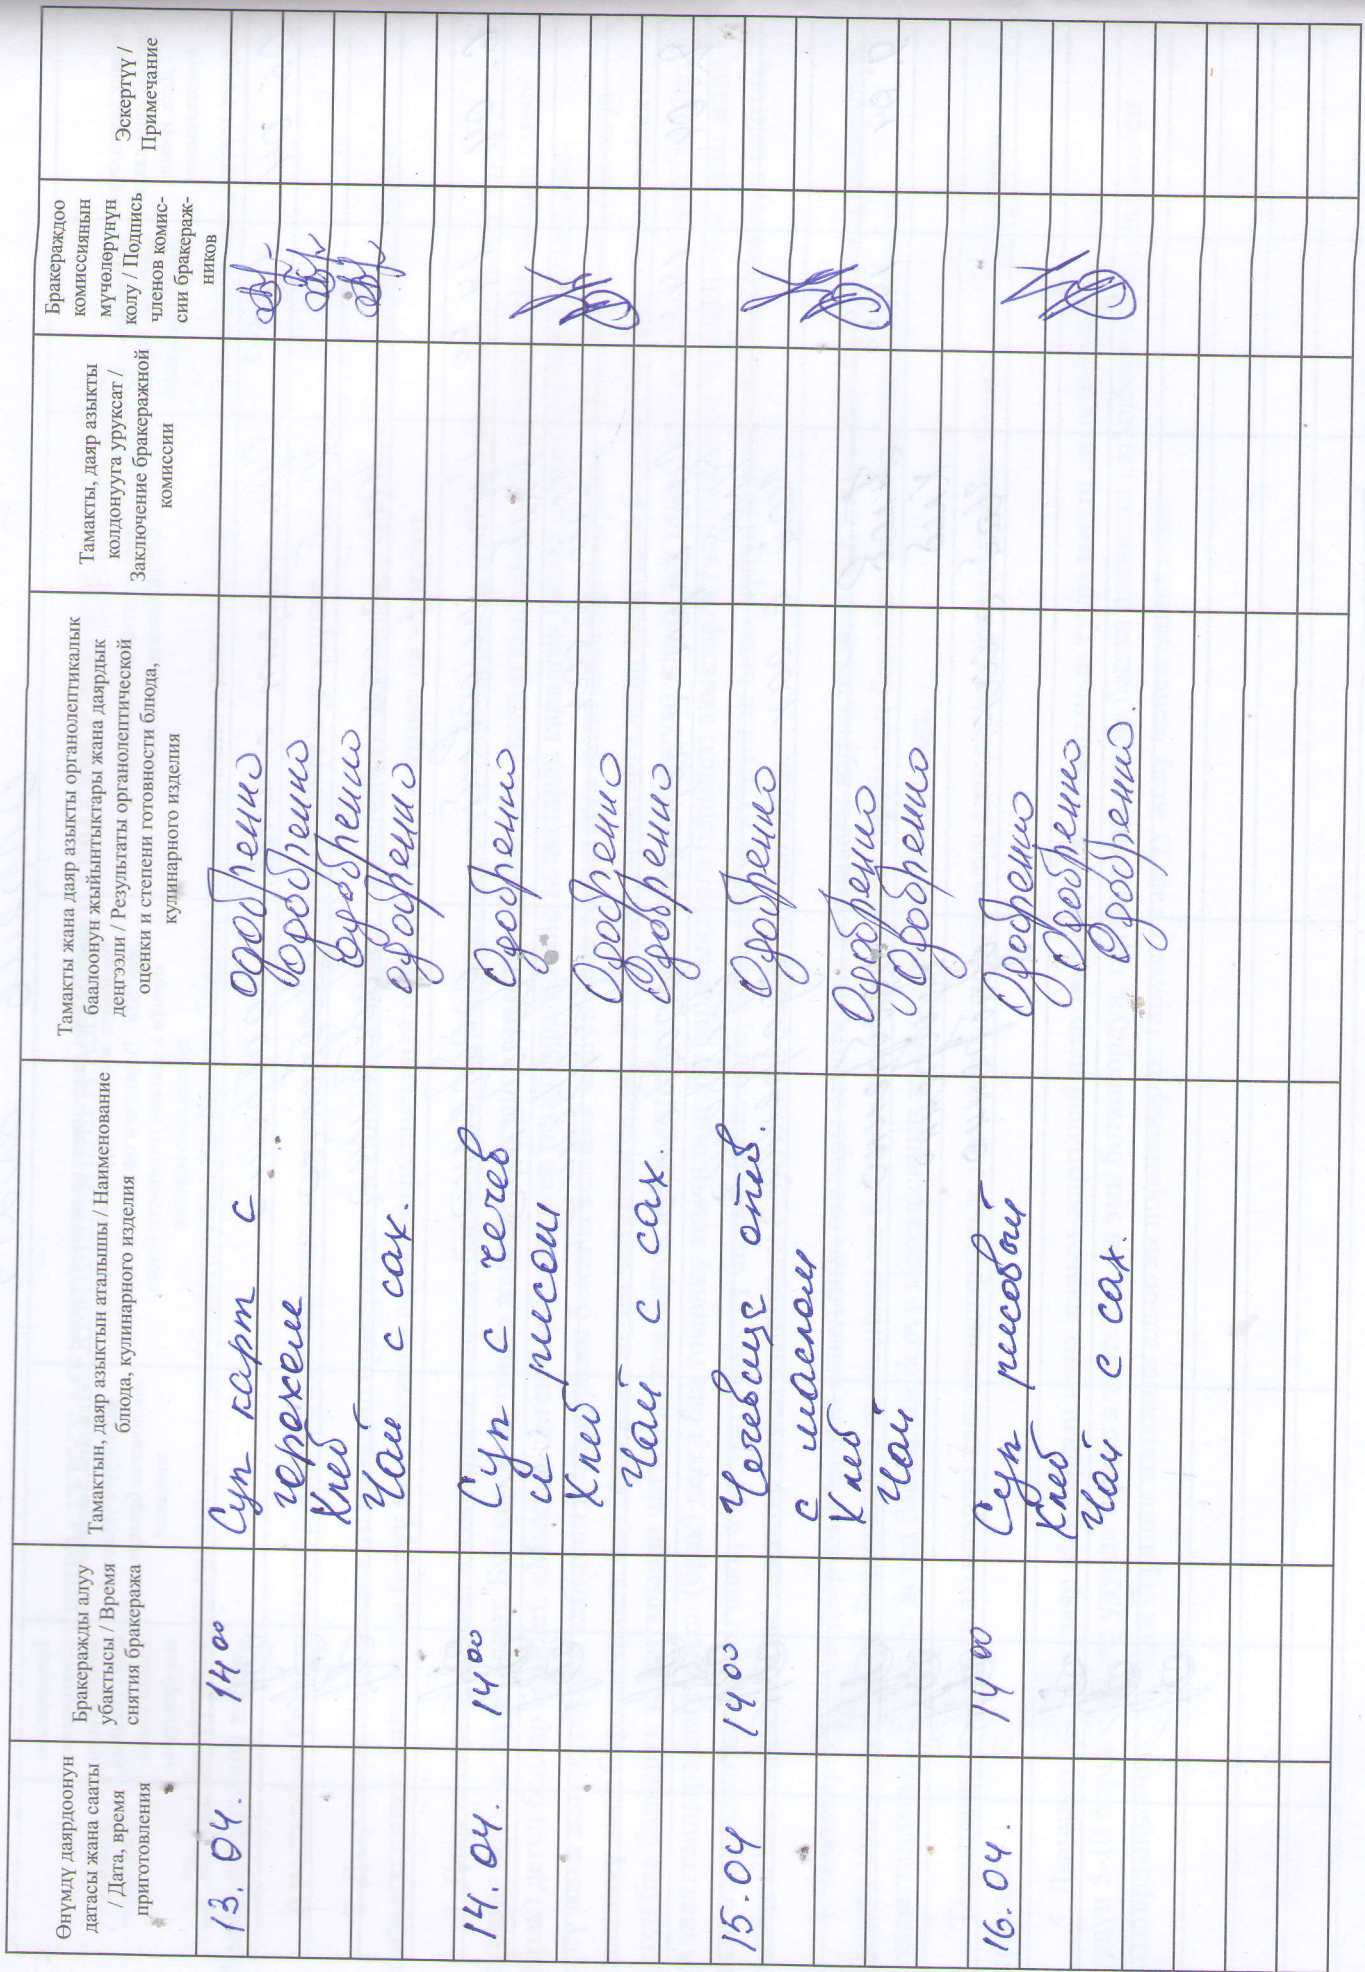 Өнүмдү даярдоонун
датасы жана сааты
/ Дата, время
приготовления
Бракеражды алуу
убактысы / Время
снятия бракеража
Тамактын, даяр азыктын аталышы / Наименование
блюда, кулинарного изделия
Тамакты жана даяр азыкты органолептикалык
баалоонун жыйынтыктары жана даярдык
деңгээли / Результаты органолептической
оценки и степени готовности блюда,
кулинарного изделия
Тамакты, даяр азыкты
колдонууга уруксат /
Заключение бракеражной
комиссии
Бракераждоо
комиссиянын
мүчөлөрүнүн
колу / Подпись
членов комис-
сии бракераж-
ников
Эскертүү /
Примечание
13.04. 14 00 Суп карт с одобренно
горохом одобренно
Хлеб одобренно
Чай с сах. одобренно
14.04. 14 00 Суп с чечев Одобренно
и рисом
Хлеб Одобренно
Чай с сах. Одобренно
15.04 14 00 Чечевица отв. Одобренно
с маслом
Хлеб Одобренно
Чай Одобренно
16.04. 14 00 Суп рисовый Одобренно
Хлеб Одобренно
Чай с сах. Одобренно.